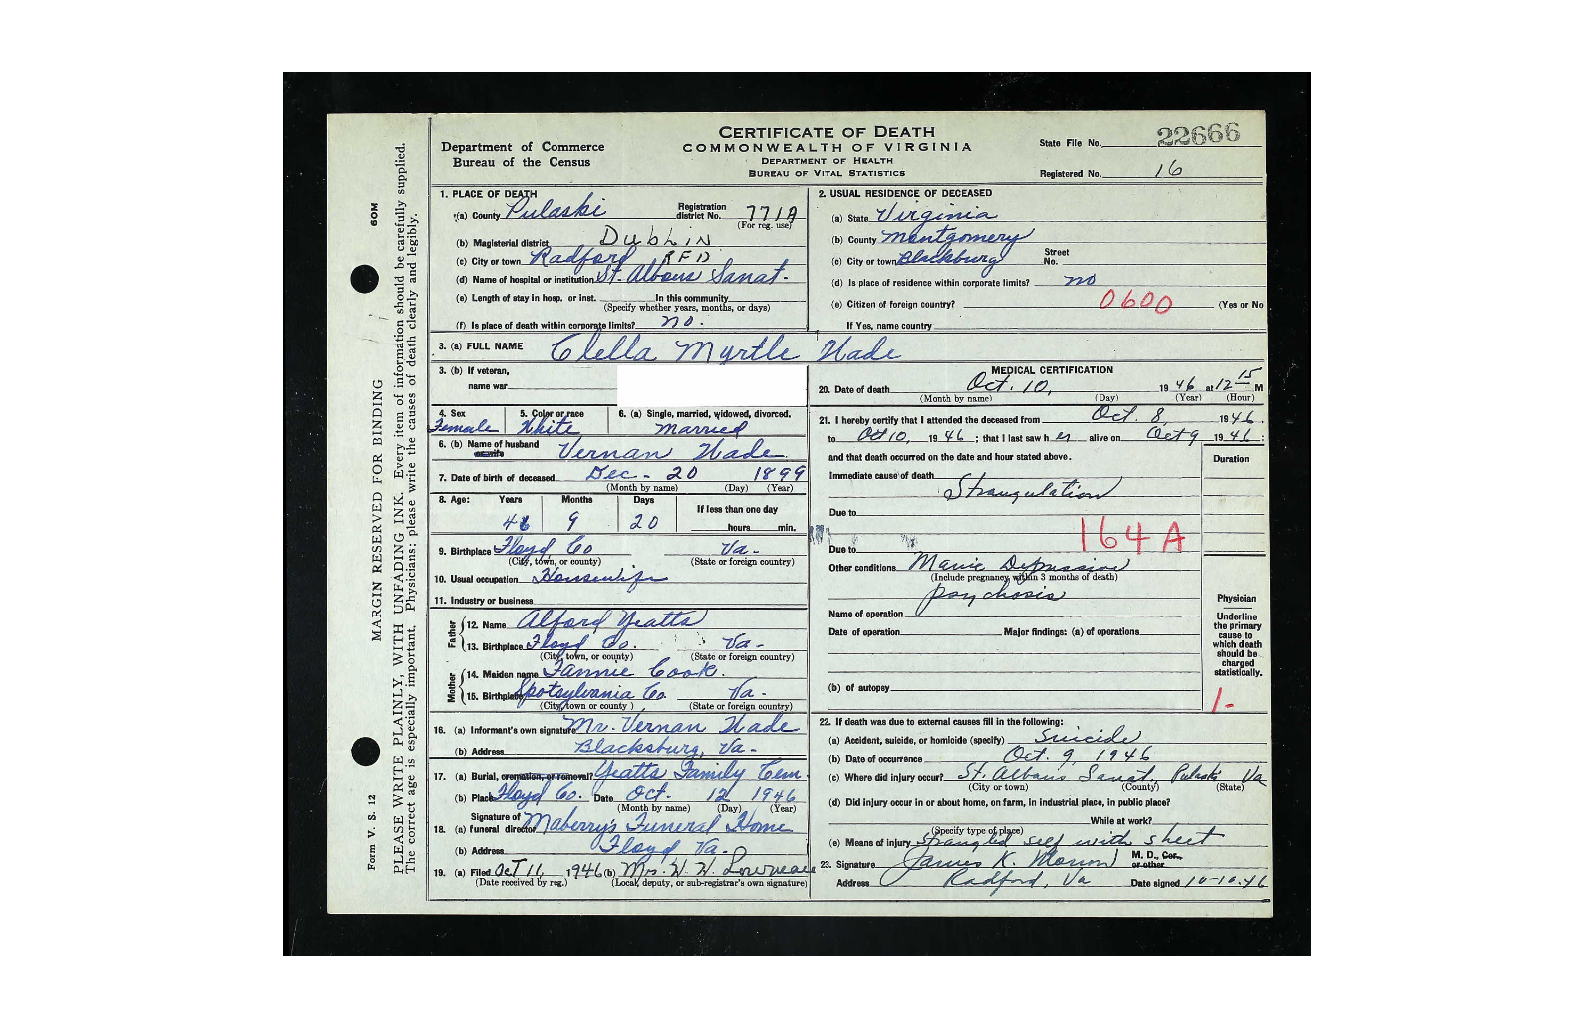 CERTIFICATE OF DEATH
COMMONWEALTH OF VIRGINIA
DEPARTMENT OF HEALTH
BUREAU OF VITAL STATISTICS
Department of Commerce
Bureau of the Census
State File No. 22666
Registered No. 16
MARGIN RESERVED FOR BINDING
60M
PLEASE WRITE PLAINLY, WITH UNFADING INK. Every item of information should be carefully supplied.
The correct age is especially important. Physicians: please write the causes of death clearly and legibly.
Form V. S. 12
1. PLACE OF DEATH
(a) County Pulaski Registration district No. 771A
(For reg. use)
(b) Magisterial district DUBLIN
(c) City or town Radford RFD
(d) Name of hospital or institution St. Albans Sanat.
(e) Length of stay in hosp. or inst. In this community
(Specify whether years, months, or days)
(f) Is place of death within corporate limits? no.
2. USUAL RESIDENCE OF DECEASED
(a) State Virginia
(b) County Montgomery
(c) City or town Blacksburg Street No.
(d) Is place of residence within corporate limits? no
(e) Citizen of foreign country? 0600 (Yes or No
If Yes, name country
3. (a) FULL NAME Clella Myrtle Wade
3. (b) If veteran,
name war
4. Sex Female
5. Color or race White
6. (a) Single, married, widowed, divorced. Married
6. (b) Name of husband or wife Vernan Wade
7. Date of birth of deceased Dec - 20 1899
(Month by name) (Day) (Year)
8. Age: Years Months Days If less than one day
46 9 20 hours min.
9. Birthplace Floyd Co Va -
(City, town, or county) (State or foreign country)
10. Usual occupation Housewife
11. Industry or business
Father
12. Name Alford Yeatts
13. Birthplace Floyd Co. Va -
(City, town, or county) (State or foreign country)
Mother
14. Maiden name Fannie Cook.
15. Birthplace Spotsylvania Co Va -
(City, town or county) (State or foreign country)
16. (a) Informant's own signature Mr. Vernan Wade
(b) Address Blacksburg, Va -
17. (a) Burial, cremation, or removal? Yeatts Family Cem
(b) Place Floyd Co. Date Oct. 12 1946
(Month by name) (Day) (Year)
18. Signature of (a) funeral director Maberry's Funeral Home
(b) Address Floyd Va.
19. (a) Filed Oct 11, 1946 (b) Mrs. W. W.
(Date received by reg.) (Local, deputy, or sub-registrar's own signature)
MEDICAL CERTIFICATION
20. Date of death Oct. 10, 1946 at 12 15 M
(Month by name) (Day) (Year) (Hour)
21. I hereby certify that I attended the deceased from Oct. 8, 1946.
to Oct 10, 1946; that I last saw her alive on Oct 9 1946;
and that death occurred on the date and hour stated above.
Duration
Immediate cause of death
Strangulation
Due to
164A
Due to
Other conditions Manic Depressive
(Include pregnancy within 3 months of death)
psychosis
Name of operation
Date of operation Major findings: (a) of operations
(b) of autopsy
Physician
Underline the primary cause to which death should be charged statistically.
1-
22. If death was due to external causes fill in the following:
(a) Accident, suicide, or homicide (specify) Suicide
(b) Date of occurrence Oct. 9, 1946
(c) Where did injury occur? St. Albans Sanat, Pulaski Va
(City or town) (County) (State)
(d) Did injury occur in or about home, on farm, in industrial place, in public place?
While at work?
(Specify type of place)
(e) Means of injury Strangled self with sheet
23. Signature James K. Morrow M. D., Cor., or other
Address Radford, Va Date signed 10-10-46